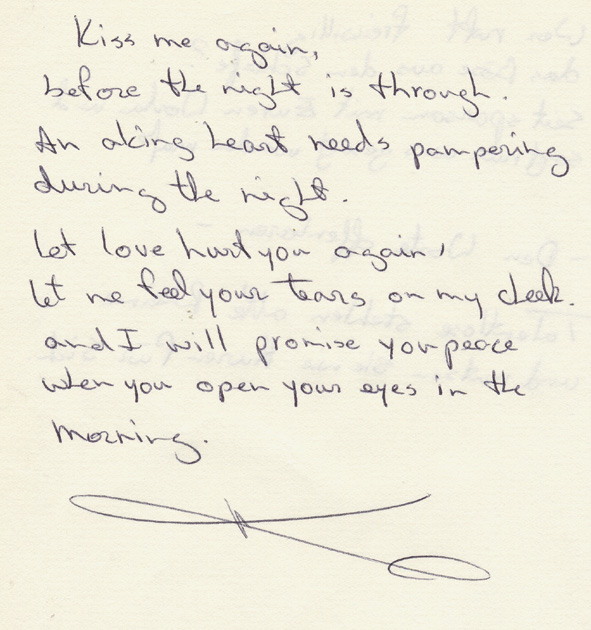 Kiss me again,
before the night is through.
An aking heart needs pampering
during the night.
Let love hurt you again,
let me feel your tears on my cheek.
and I will promise you peace
when you open your eyes in the
morning.